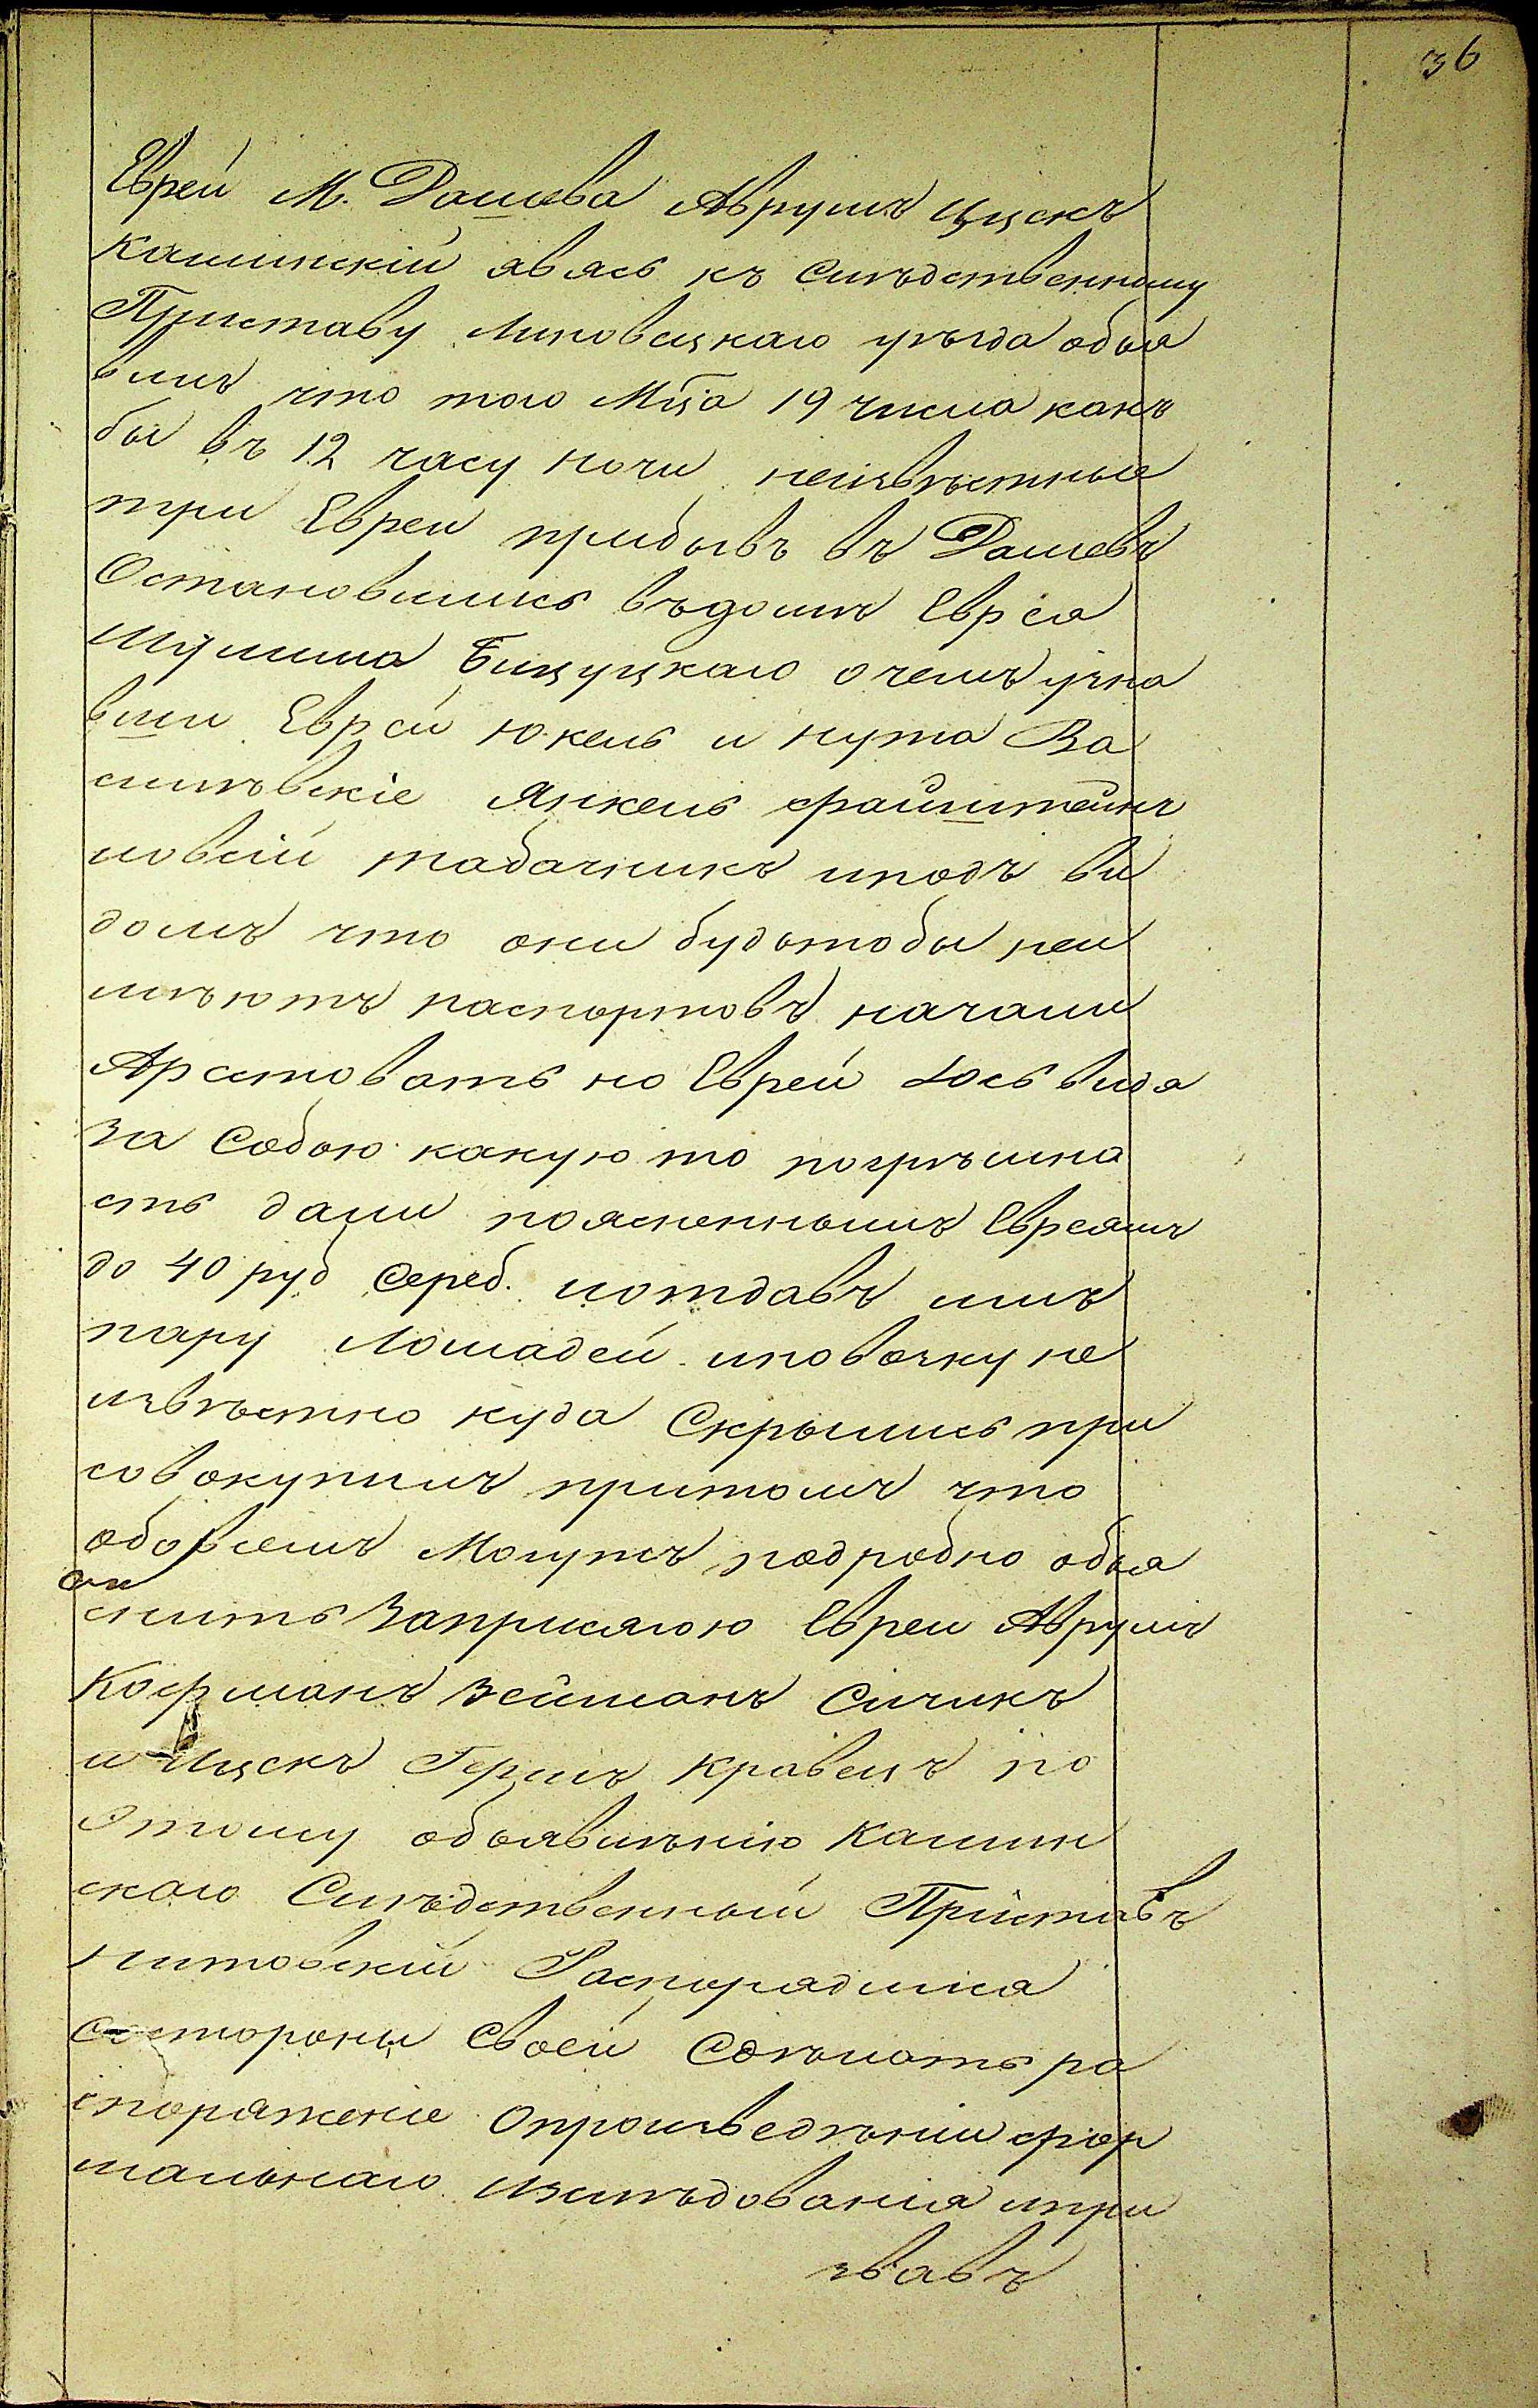 36
Еврей М. Дашева Аврумъ Ицекъ
Кашинскій явясь къ Слѣдственному
Приставу Липовецкаго уѣзда объя
вилъ что того Мца 19 числа какъ
бы въ 12 часу ночи неизвѣстные
три Евреи прибывъ въ Дашевъ
Остановились въдомѣ Еврея
Шулима Бицуцкаго очемъ узна
вши Евреи Юкель и Нута Ва
силѣвскіе Янкель Файнштейнъ
иовсій табачникъ иподъ ви
домъ что они будьтобы неи
мѣютъ паспортовъ начали
Арестовать но Еврей Іось видя
за Собою какую то погрѣшно
сть дали поясненнымъ Евреямъ
до 40 руб Сереб. иотдавъ имъ
пару Лошадей иповозку не
извѣстно куда Скрылись при
совокупилъ притомъ что
обовсемъ Могутъ подробно объя
снить Заприсягою Евреи Аврумъ
Кофманъ Зейманъ Сичикъ
и Ицекъ Гершъ Кравецъ по
Этому объявленію Кашин
скаго Слѣдственный Приставъ
Нитовскій Распорядился
Состороны Своей Сдѣлать ра
споряженіе Опроизведѣніи фор
мальнаго Изслѣдованія ипри
звавъ